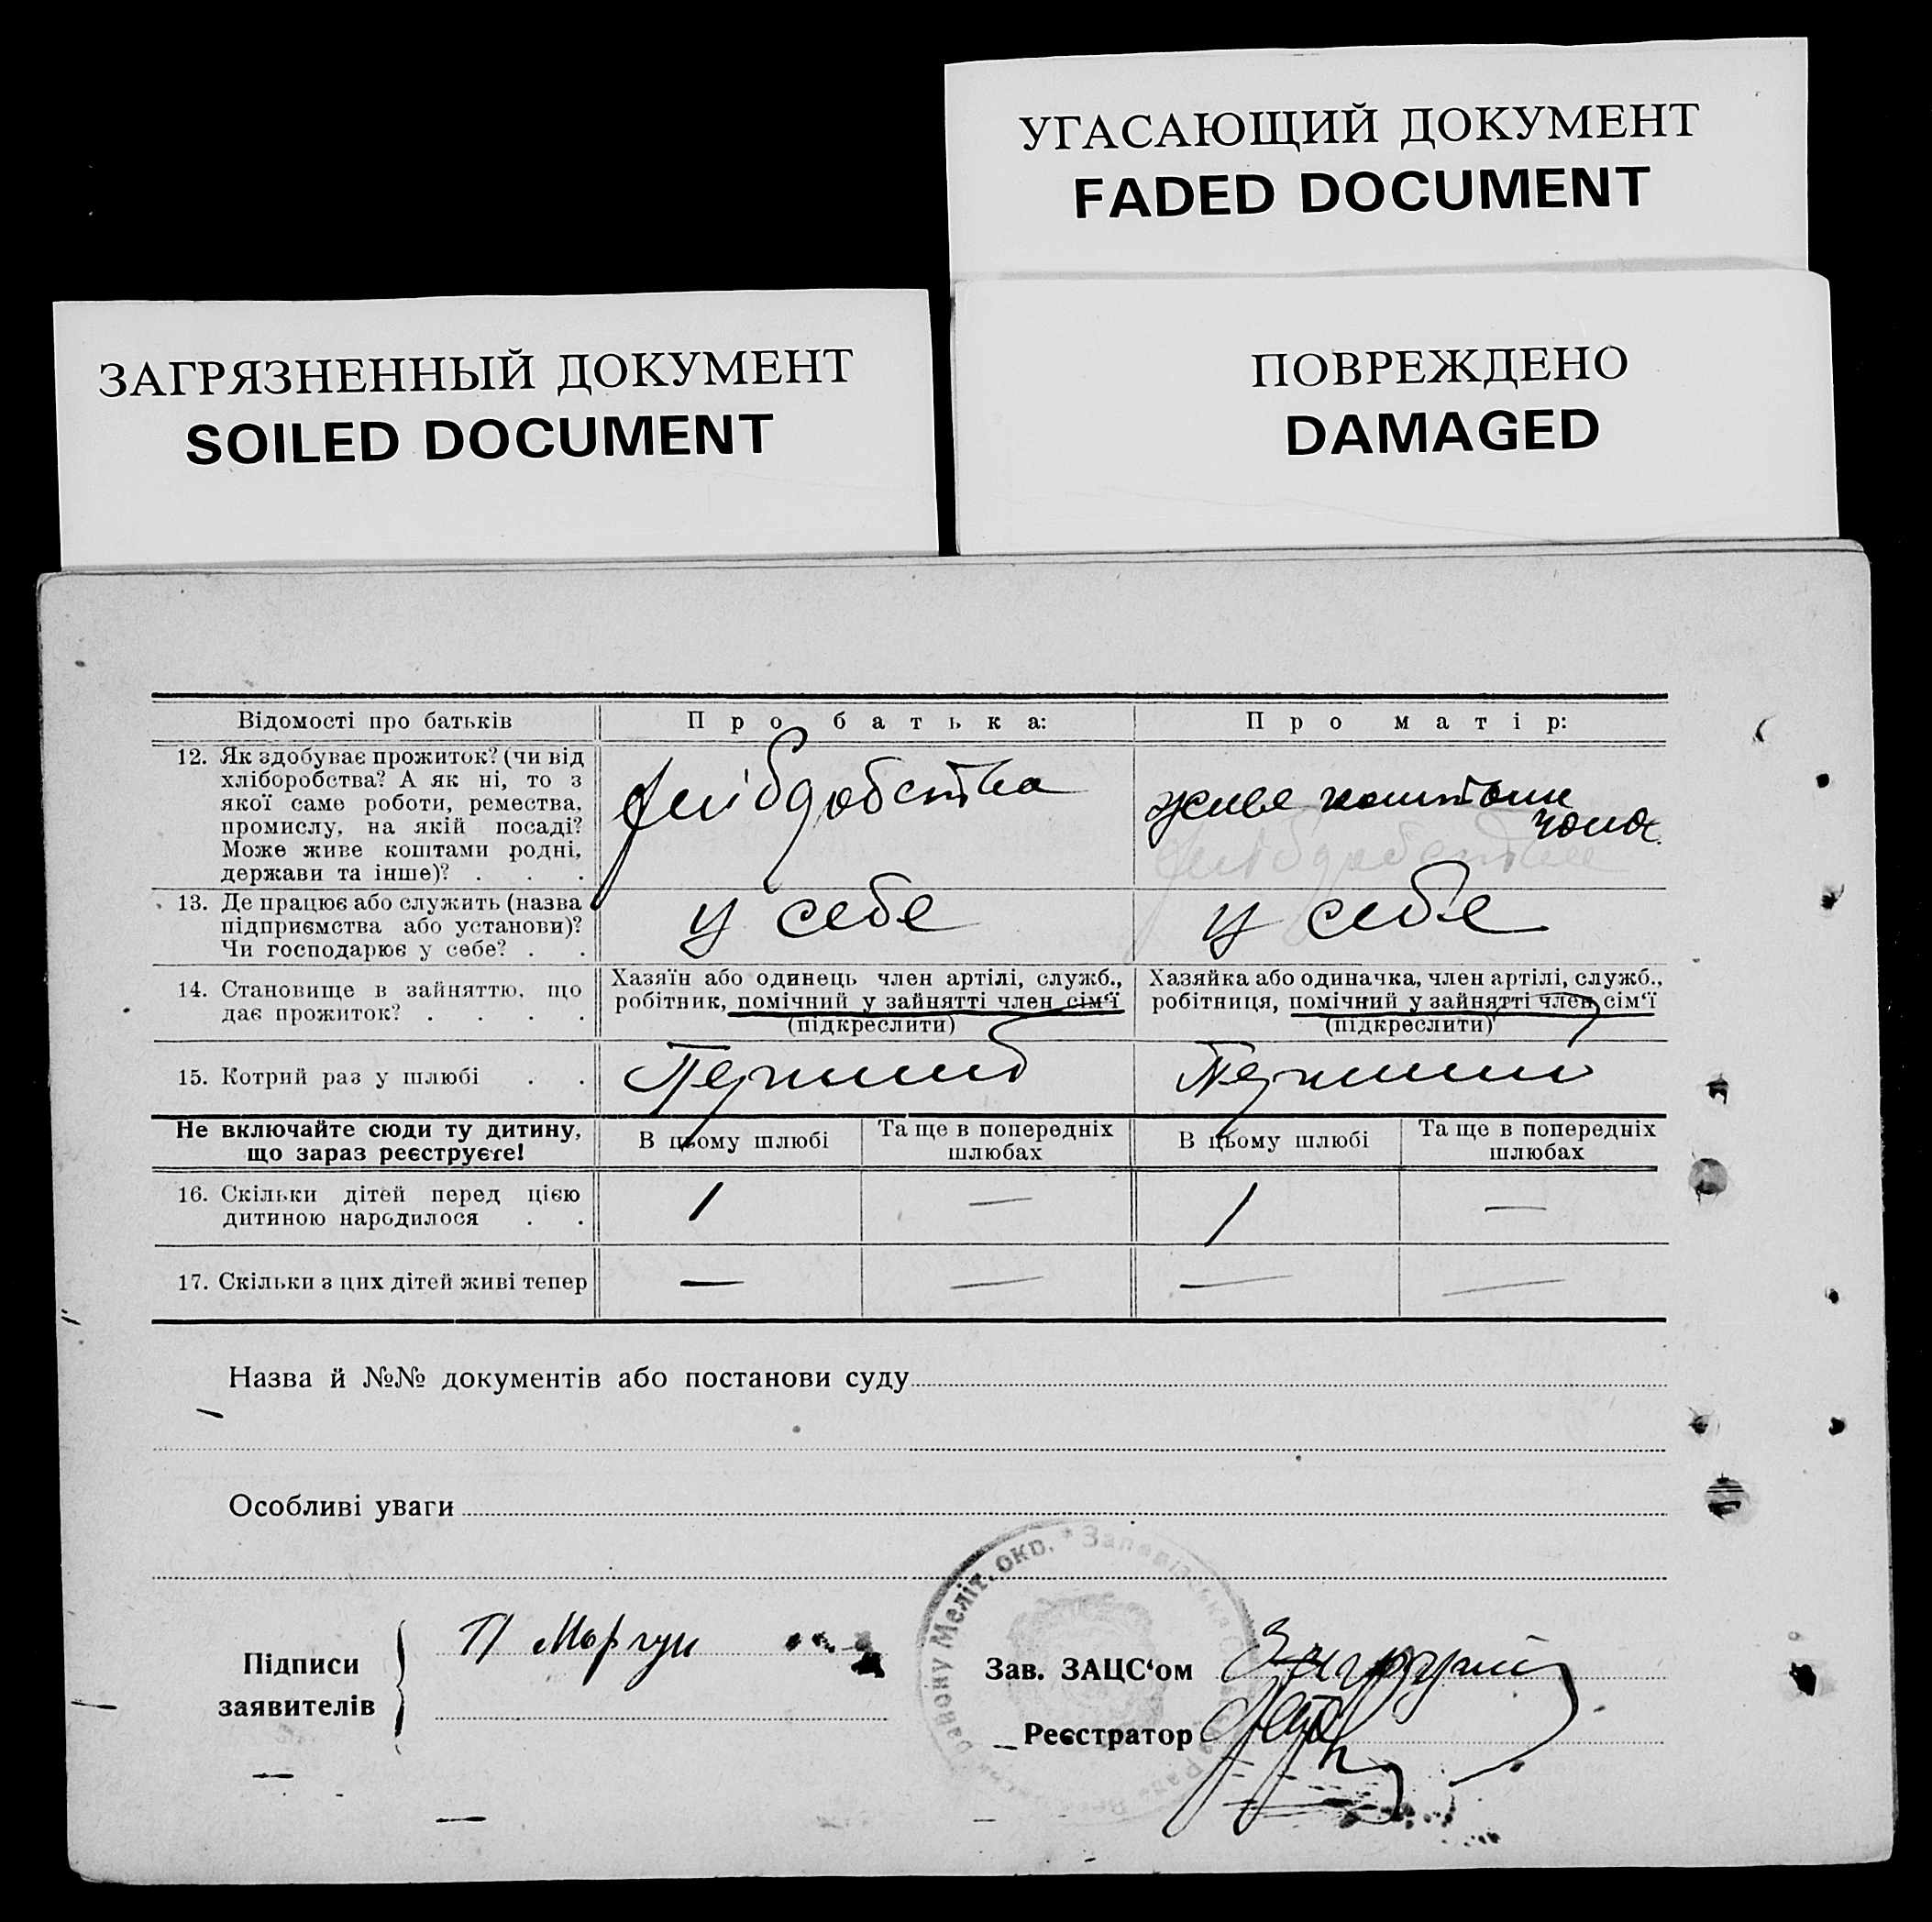 УГАСАЮЩИЙ ДОКУМЕНТ
FADED DOCUMENT
ЗАГРЯЗНЕННЫЙ ДОКУМЕНТ
SOILED DOCUMENT
ПОВРЕЖДЕНО
DAMAGED
Відомості про батьків
Про батька:
Про матір:
12. Як здобуває прожиток? (чи від
хліборобства? А як ні, то з
якої саме роботи, ремества,
промислу, на якій посаді?
Може живе коштами родні,
держави та інше)? . . .
живе коштами
чол.
13. Де працює або служить (назва
підприємства або установи)?
Чи господарює у себе? . .
у себе
у себе
14. Становище в зайняттю, що
дає прожиток? . . . .
Хазяїн або одинець член артілі, служб.,
робітник, помічний у зайнятті член сім‘ї
(підкреслити)
Хазяйка або одиначка, член артілі, служб.,
робітниця, помічний у зайнятті член сім‘ї
(підкреслити)
15. Котрий раз у шлюбі . .
Перший
Перший
Не включайте сюди ту дитину,
що зараз реєструєте!
В цьому шлюбі
Та ще в попередніх
шлюбах
В цьому шлюбі
Та ще в попередніх
шлюбах
16. Скільки дітей перед цією
дитиною народилося . .
1
—
1
—
17. Скільки з цих дітей живі тепер
—
—
—
—
Назва й №№ документів або постанови суду
Особливі уваги
Підписи
заявителів
П Моргун
Зав. ЗАЦС‘ом
Реєстратор
району Меліт. окр.